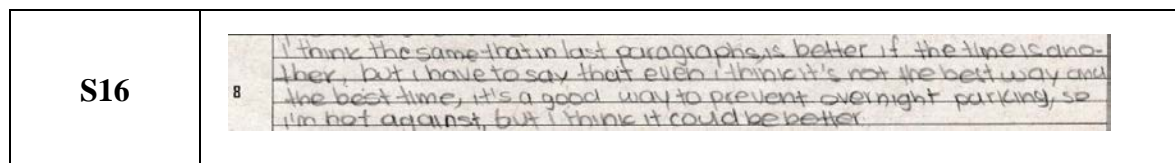 S16
8
i think the same that in last paragraphs, is better if the time is ano-
ther, but i have to say that even i think it's not the best way and
the best time, it's a good way to prevent overnight parking, so
i'm not against, but i think it could be better.